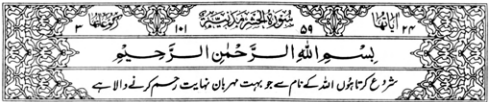 اٰيَاتُهَا ٢٤ ٥٩ سُوْرَةُ الْحَشْرِ مَدَنِيَّةٌ ١٠١ رُكُوْعَاتُهَا ٣
بِسْمِ اللهِ الرَّحْمٰنِ الرَّحِيْمِ
شروع کرتا ہوں اللہ کے نام سے جو بہت مہربان نہایت رحم کرنے والا ہے